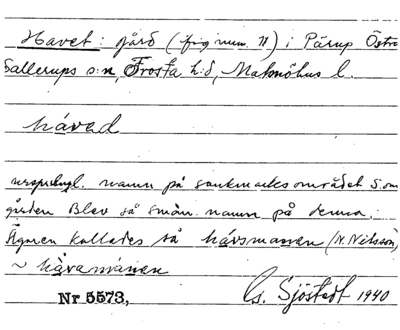 Havet: gård (fig num. 11) i Pärup Östra
Sallerups s:n, Frosta h:d, Malmöhus l.
håvad
ursprungl. namn på sankmarksområdet S. om
gården Blev så smån. namn på denna.
Ägaren kallades så håvsmannen (N. Nilsson)
~ håvamànen
Nr 5573, G. Sjöstedt 1940